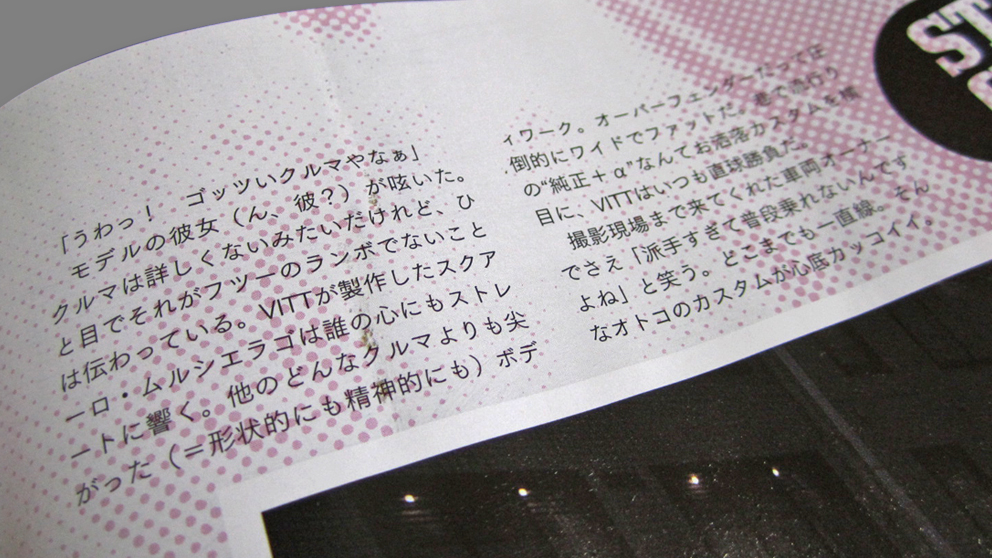 「うわっ！　ゴッツいクルマやなぁ」
モデルの彼女（ん、彼？）が呟いた。
クルマは詳しくないみたいだけれど、ひ
と目でそれがフツーのランボでないこと
は伝わっている。VITTが製作したスクア
ーロ・ムルシエラゴは誰の心にもストレ
ートに響く。他のどんなクルマよりも尖
がった（＝形状的にも精神的にも）ボデ
ィワーク。オーバーフェンダーだって圧
倒的にワイドでファットだ。巷で流行り
の“純正＋α”なんてお洒落カスタムを横
目に、VITTはいつも直球勝負だ。
撮影現場まで来てくれた車両オーナー
でさえ「派手すぎて普段乗れないんです
よね」と笑う。どこまでも一直線。そん
なオトコのカスタムが心底カッコイイ。
ST